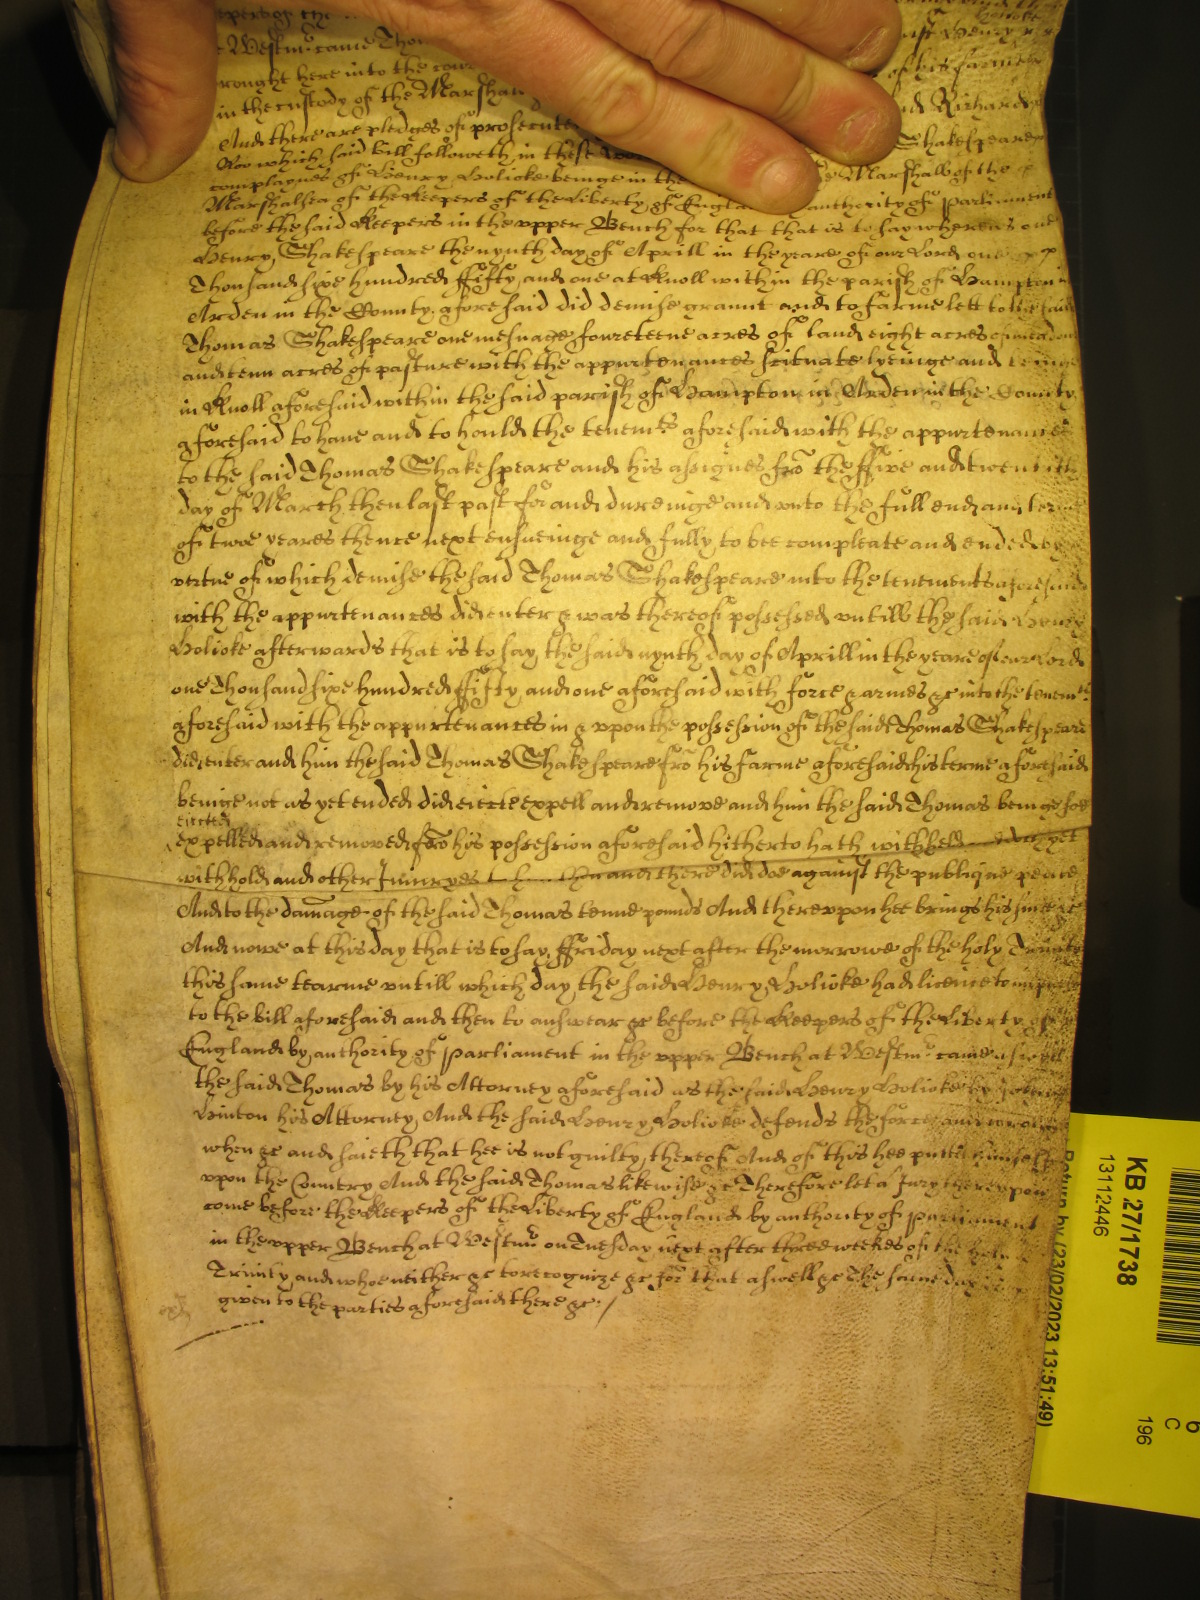 Westm^r. came Thom
rought here into the cour of his farme
in the custody of the Marshall and Richard
And there are pledges of prosecute Shakespeare
which said bill followeth in these Marshall of the
complaynes of Henry Holioke beinge in the
Marshalsea of the Keepers of the Liberty of Engla authority of Parliament
before the said Keepers in the upper Bench for that that is to say whereas one
Henry Shakespeare the nynth day of Aprill in the yeare of our Lord one
Thousand sixe hundred ffifty and one at Knoll within the parish of Hampton in
Arden in the County aforesaid did demise graunt and to farme lett to the said
Thomas Shakespeare one mesuage fowreteene acres of land eight acres of meadow
and tenn acres of pasture with the appurtenances scituate lyeinge and beinge
in Knoll aforesaid within the said parish of Hampton in Arden in the County
aforesaid to have and to hould the tenem^ts aforesaid with the appurtenances
to the said Thomas Shakespeare and his assignes fro the ffive and twentith
day of March then last past for and dureinge and unto the full end and terme
of twoe yeares thence next ensueinge and fully to bee compleate and ended by
vertue of which demise the said Thomas Shakespeare into the tenements aforesaid
with the appurtenances did enter & was thereof possessed untill the said Henry
Holioke afterwards that is to say the said nynth day of Aprill in the yeare of our Lord
one Thousand sixe hundred ffifty and one aforesaid with force & armes &c into the tenem^ts
aforesaid with the appurtenances in & upon the possession of the said Thomas Shakespeare
did enter and him the said Thomas Shakespeare fro his farme aforesaid his terme aforesaid
beinge not as yet ended did eiecte expell and remove and him the said Thomas beinge soe
eiected
expelled and removed fro his possession aforesaid hitherto hath withheld doth yet
withhold and other Iniuryes there did doe against the publique peace
And to the damage of the said Thomas tenne pounds And thereupon hee brings his suite &c
And nowe at this day that is to say ffriday next after the morrowe of the holy Trinity
this same tearme untill which day the said Henry Holioke had licence to imparle
to the bill aforesaid and then to answear &c before the Keepers of the Liberty of
England by authority of Parliament in the upper Bench at Westm^r. came aswell
the said Thomas by his Attorney aforesaid as the said Henry Holioke by
Hinton his Attorney And the said Henry Holioke defends the force and wrong
when &c and saieth that hee is not guilty thereof And of this hee putts himselfe
upon the Country And the said Thomas likewise &c Therefore let a Jury thereupon
come before the Keepers of the Liberty of England by authority of Parliament
in the upper Bench at Westm^r on Tuesday next after three weekes of the holy
Trinity and whoe neither &c to recognize &c for that aswell &c The same day is
given to the parties aforesaid there &c /
KB 27/1738
13112446
Return by (23/02/2023 13:51:49)
6
C
196